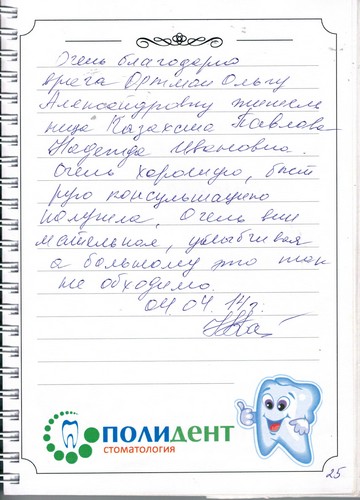 Очень благодарна
врача Ортман Ольгу
Александровну жител
ница Казахстна Павлова
Надежда Ивановна.
Очень хорошую, быст
рую консультацию
получила. Очень вни
мательная, улыбчивая
а больному это так
не обходимо.
04.04.14г.
ПОЛИДЕНТ
СТОМАТОЛОГИЯ
25